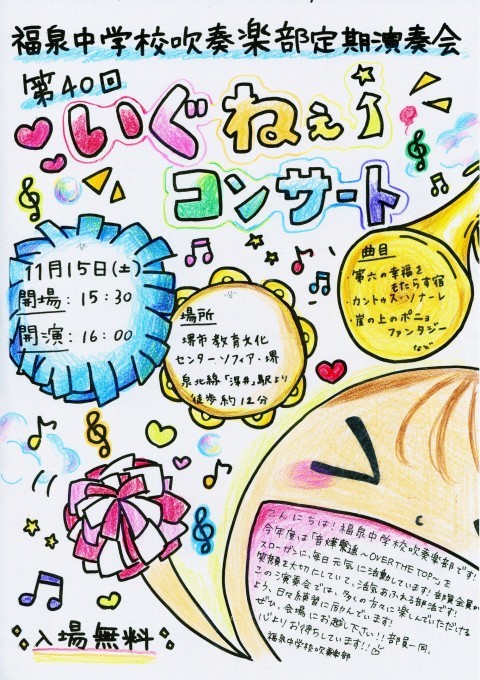 福泉中学校吹奏楽部定期演奏会
第40回
いぐねぇ↑
コンサート
11月15日(土)
開場:15:30
開演:16:00
場所
堺市教育文化
センター・ソフィア・堺
泉北線「深井」駅より
徒歩約12分
曲目
・第六の幸福を
もたらす宿
・カントゥス・ソナーレ
・崖の上のポニョ
ファンタジー
など
こんにちは!福泉中学校吹奏楽部です!
今年度は「音爆響進〜OVER THE TOP〜」を
スローガンに、毎日元気に活動しています!部員全員が
笑顔を大切にしていて、活気あふれる部活です!
この演奏会では、多くの方々に楽しんでいただける
よう、日々練習に励んでいます!
ぜひ、会場にお越し下さい!!部員一同、
心よりお待ちしています!!
福泉中学校吹奏楽部
入場無料